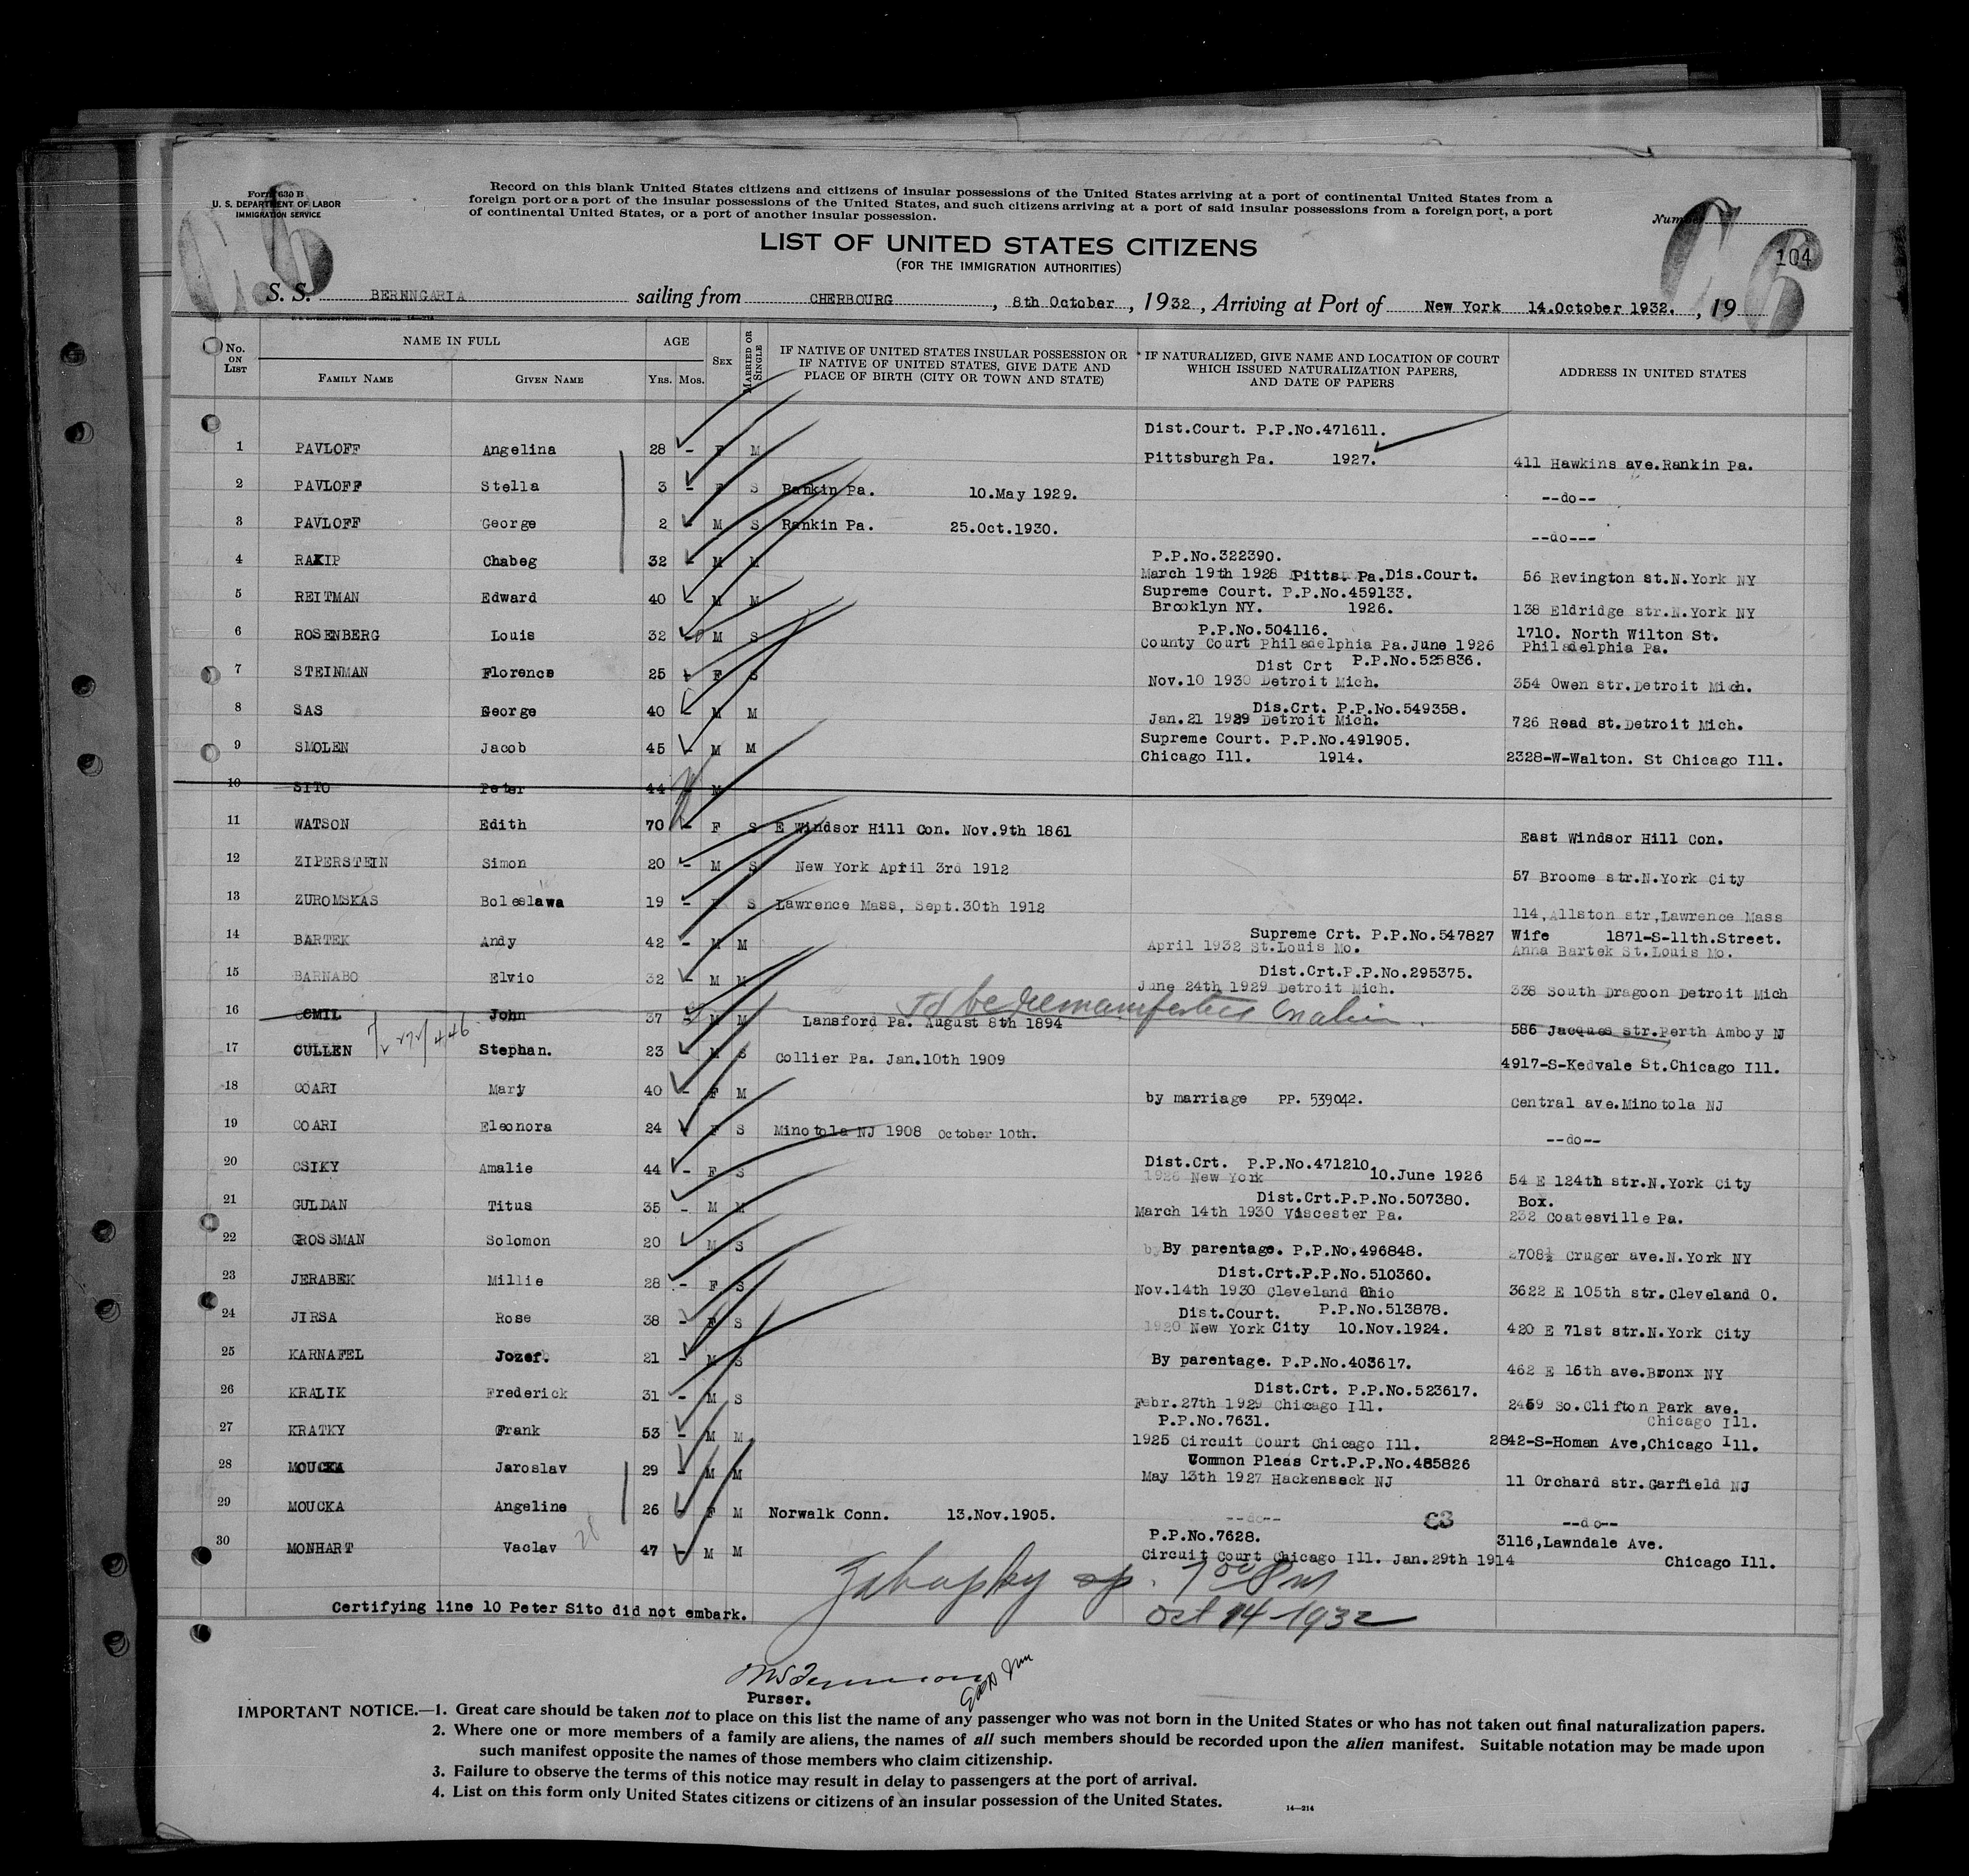 Form 630 B
U. S. DEPARTMENT OF LABOR
IMMIGRATION SERVICE
Record on this blank United States citizens and citizens of insular possessions of the United States arriving at a port of continental United States from a
foreign port or a port of the insular possessions of the United States, and such citizens arriving at a port of said insular possessions from a foreign port, a port
of continental United States, or a port of another insular possession.
Number
104
LIST OF UNITED STATES CITIZENS
(FOR THE IMMIGRATION AUTHORITIES)
S. S. BERENGARIA sailing from CHERBOURG, 8th October, 1932, Arriving at Port of New York 14.October 1932., 19
No. ON LIST
NAME IN FULL
FAMILY NAME GIVEN NAME
AGE
YRS. MOS.
SEX
MARRIED OR SINGLE
IF NATIVE OF UNITED STATES INSULAR POSSESSION OR
IF NATIVE OF UNITED STATES, GIVE DATE AND
PLACE OF BIRTH (CITY OR TOWN AND STATE)
IF NATURALIZED, GIVE NAME AND LOCATION OF COURT
WHICH ISSUED NATURALIZATION PAPERS,
AND DATE OF PAPERS
ADDRESS IN UNITED STATES
Dist.Court. P.P.No.471611.
1 PAVLOFF Angelina 28 - F M Pittsburgh Pa. 1927. 411 Hawkins ave.Rankin Pa.
2 PAVLOFF Stella 3 - F S Rankin Pa. 10.May 1929. --do--
3 PAVLOFF George 2 - M S Rankin Pa. 25.Oct.1930. --do---
P.P.No.322390.
4 RAKIP Chabeg 32 - M M March 19th 1928 Pitts. Pa.Dis.Court. 56 Revington st.N.York NY
Supreme Court. P.P.No.459133.
5 REITMAN Edward 40 - M M Brooklyn NY. 1926. 138 Eldridge str.N.York NY
P.P.No.504116. 1710. North Wilton St.
6 ROSENBERG Louis 32 - M S County Court Philadelphia Pa.June 1926 Philadelphia Pa.
Dist Crt P.P.No.525836.
7 STEINMAN Florence 25 - F S Nov.10 1930 Detroit Mich. 354 Owen str.Detroit Mich.
Dis.Crt. P.P.No.549358.
8 SAS George 40 - M M Jan.21 1929 Detroit Mich. 726 Read st.Detroit Mich.
Supreme Court. P.P.No.491905.
9 SMOLEN Jacob 45 - M M Chicago Ill. 1914. 2328-W-Walton. St Chicago Ill.
10 SITO Peter 44 - M
11 WATSON Edith 70 - F S E Windsor Hill Con. Nov.9th 1861 East Windsor Hill Con.
12 ZIPERSTEIN Simon 20 - M S New York April 3rd 1912 57 Broome str.N.York City
13 ZUROMSKAS Boleslawa 19 - F S Lawrence Mass, Sept.30th 1912 114,Allston str,Lawrence Mass
Supreme Crt. P.P.No.547827 Wife 1871-S-11th.Street.
14 BARTEK Andy 42 - M M April 1932 St.Louis Mo. Anna Bartek St.Louis Mo.
Dist.Crt.P.P.No.295375.
15 BARNABO Elvio 32 - M M June 24th 1929 Detroit Mich. 338 South Dragoon Detroit Mich
To be remanifested on alien
16 CMIL John 37 - M M Lansford Pa. August 8th 1894 586 Jacques str.Perth Amboy NJ
17 CULLEN Stephan. 23 - M S Collier Pa. Jan.10th 1909 4917-S-Kedvale St.Chicago Ill.
18 COARI Mary 40 - F M by marriage PP. 539042. Central ave.Minotola NJ
19 COARI Eleonora 24 - F S Minotola NJ 1908 October 10th. --do--
Dist.Crt. P.P.No.471210.
20 CSIKY Amalie 44 - F S 1926 New York 10.June 1926 54 E 124th str.N.York City
Dist.Crt.P.P.No.507380. Box.
21 GULDAN Titus 35 - M M March 14th 1930 Viscester Pa. 232 Coatesville Pa.
22 GROSSMAN Solomon 20 - M S By parentage. P.P.No.496848. 2708½ Cruger ave.N.York NY
Dist.Crt.P.P.No.510360.
23 JERABEK Millie 28 - F S Nov.14th 1930 Cleveland Ohio 3622 E 105th str.Cleveland O.
Dist.Court. P.P.No.513878.
24 JIRSA Rose 38 - F S 1920 New York City 10.Nov.1924. 420 E 71st str.N.York City
25 KARNAFEL Jozef. 21 - M S By parentage. P.P.No.403617. 462 E 16th ave.Bronx NY
Dist.Crt. P.P.No.523617.
26 KRALIK Frederick 31 - M S Febr.27th 1929 Chicago Ill. 2459 So.Clifton Park ave.
P.P.No.7631. Chicago Ill.
27 KRATKY Frank 53 - M M 1925 Circuit Court Chicago Ill. 2842-S-Homan Ave,Chicago Ill.
Common Pleas Crt.P.P.No.485826
28 MOUCKA Jaroslav 29 - M M May 13th 1927 Hackensack NJ 11 Orchard str.Garfield NJ
29 MOUCKA Angeline 26 - F M Norwalk Conn. 13.Nov.1905. --do-- --do--
P.P.No.7628. 3116,Lawndale Ave.
30 MONHART Vaclav 47 - M M Circuit Court Chicago Ill. Jan.29th 1914 Chicago Ill.
7 00 PM
Certifying line 10 Peter Sito did not embark.
Oct 14-1932
Purser.
IMPORTANT NOTICE.—1. Great care should be taken not to place on this list the name of any passenger who was not born in the United States or who has not taken out final naturalization papers.
2. Where one or more members of a family are aliens, the names of all such members should be recorded upon the alien manifest. Suitable notation may be made upon
such manifest opposite the names of those members who claim citizenship.
3. Failure to observe the terms of this notice may result in delay to passengers at the port of arrival.
4. List on this form only United States citizens or citizens of an insular possession of the United States.
14—214